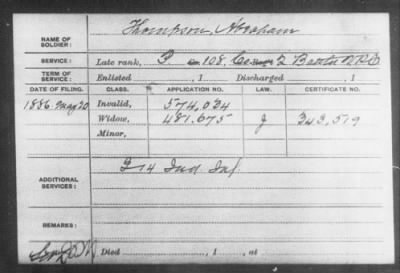 NAME OF SOLDIER: Thompson, Abraham
SERVICE: Late rank, P 108 Co 2 Battn V.R.C
TERM OF SERVICE: Enlisted , 1 Discharged , 1
DATE OF FILING. CLASS. APPLICATION NO. LAW. CERTIFICATE NO.
1886 May 20 Invalid, 574,034
Widow, 481,675 J 343,519
Minor,
ADDITIONAL SERVICES: 14 Ind Inf.
REMARKS:
Died , 1 , at